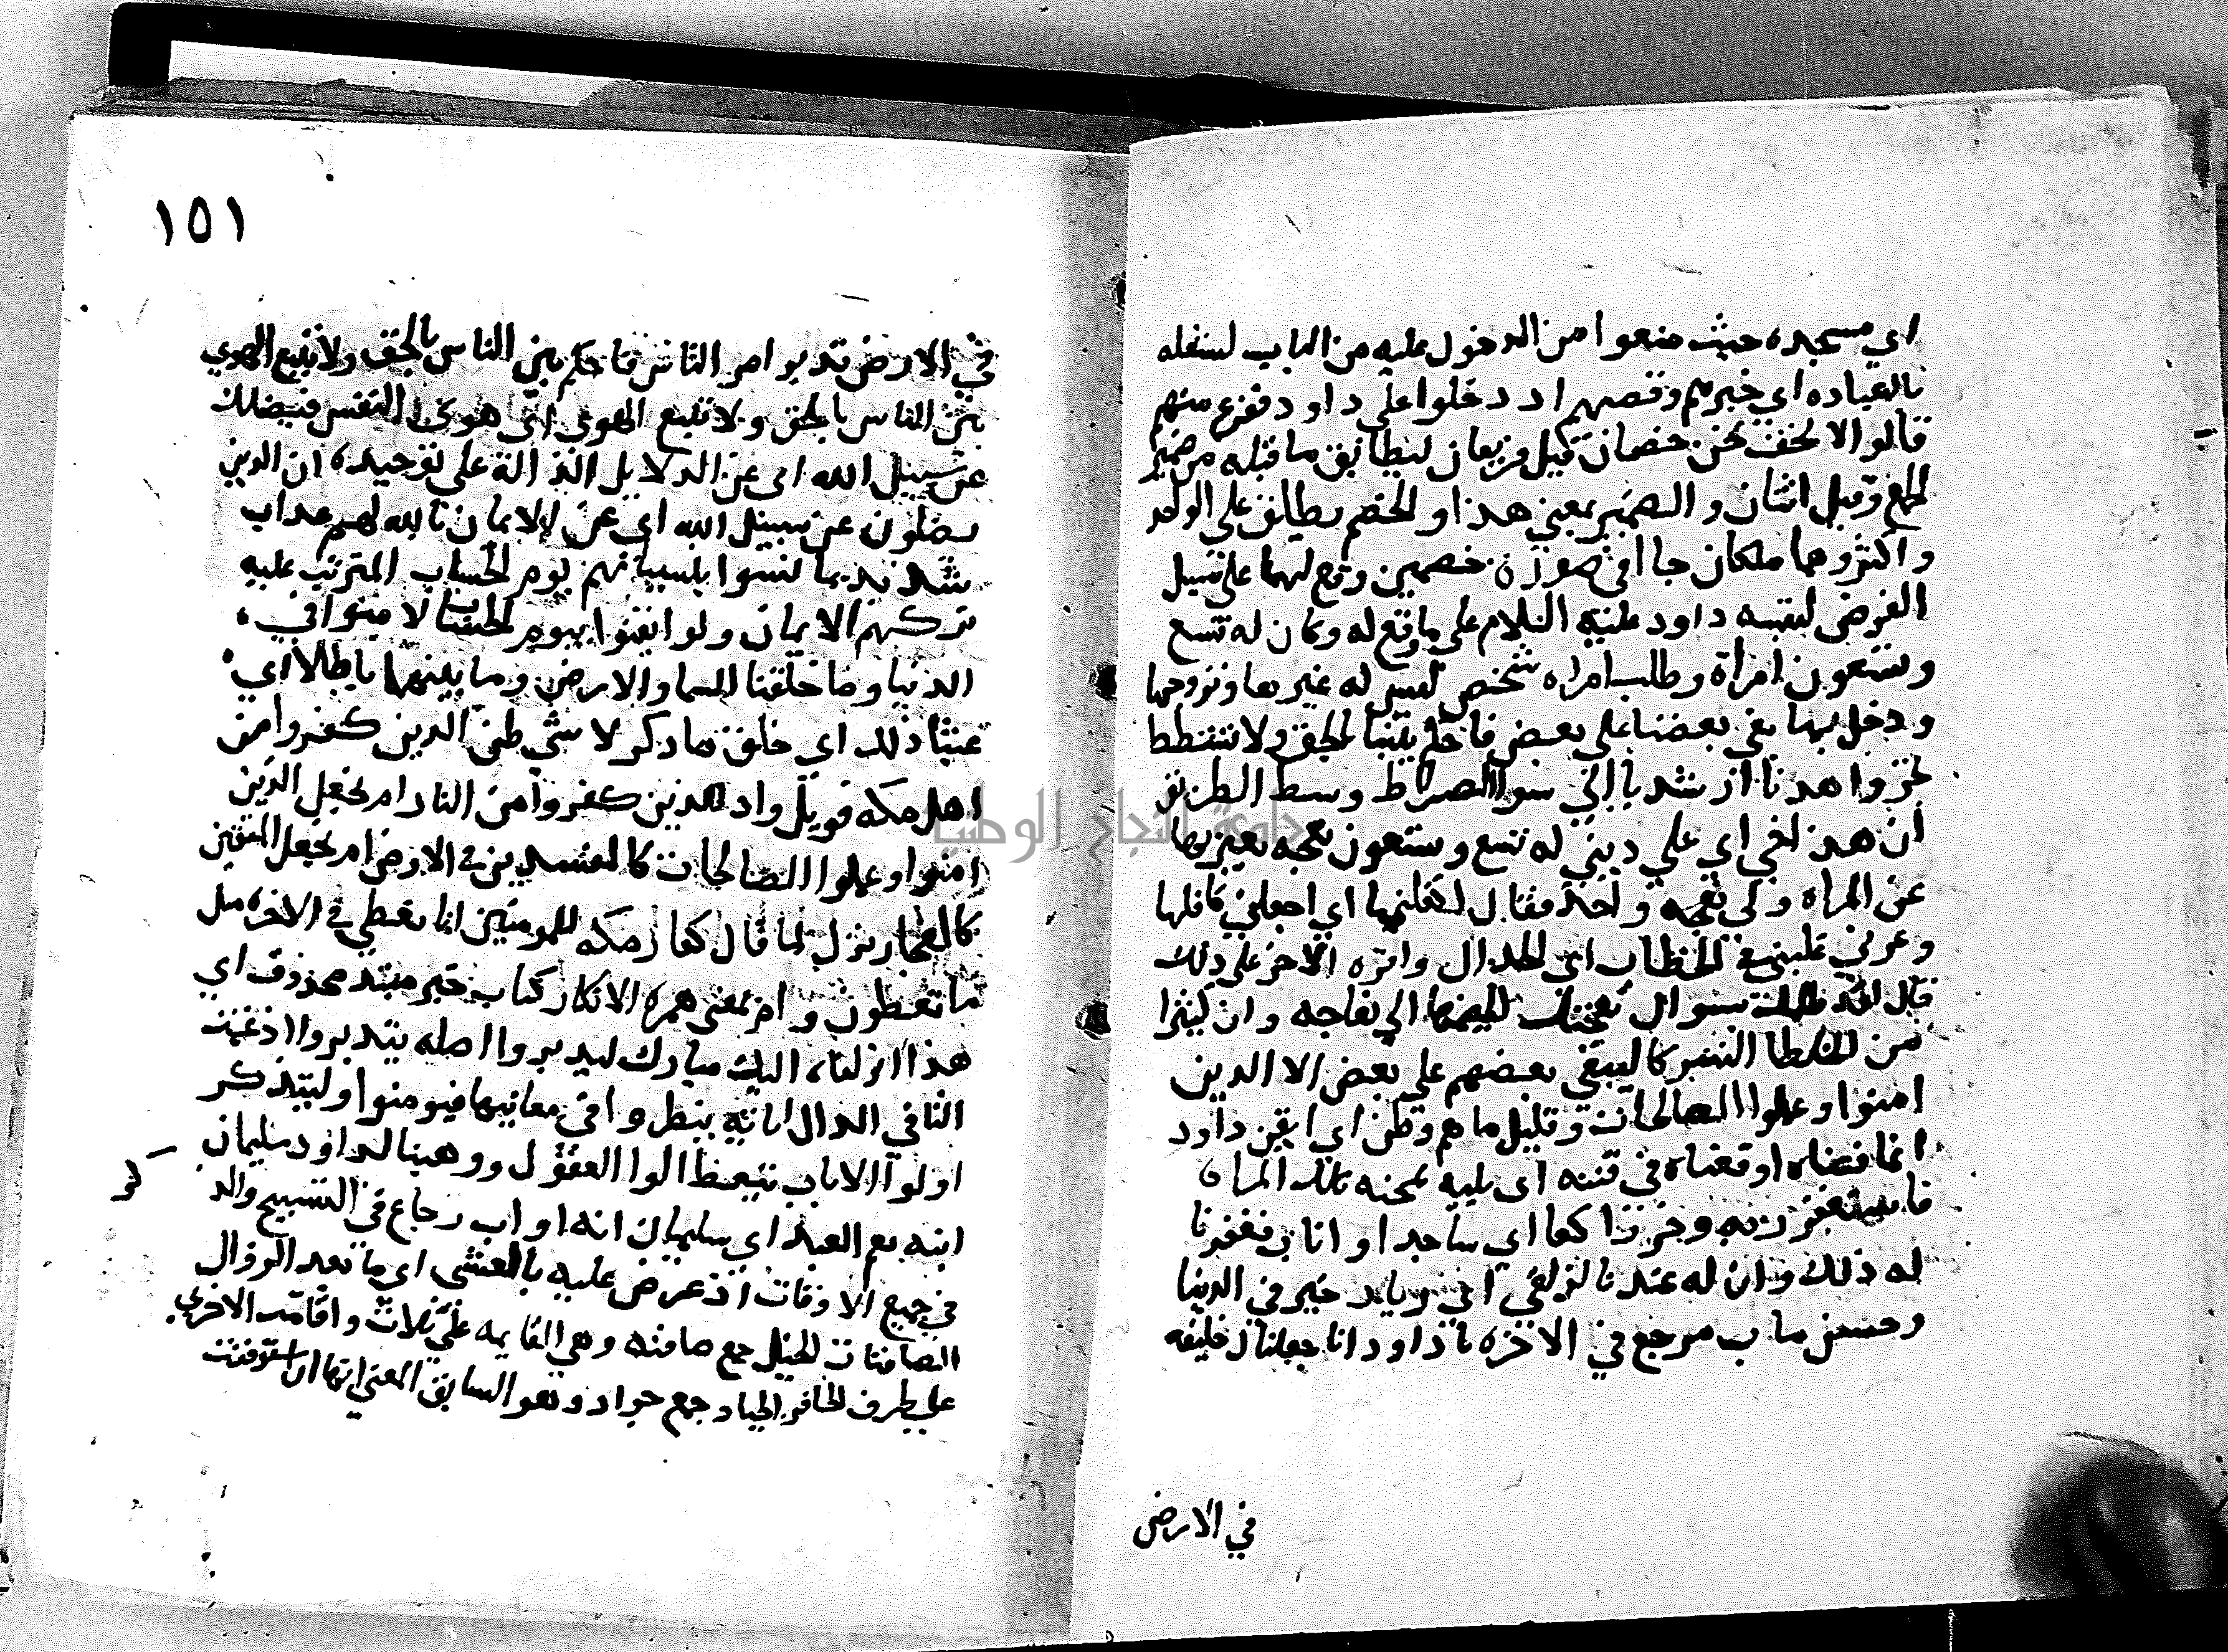 اي مسجده حيث منعوا من الدخول عليه من الباب لشغله
بالعباده اي خبرهم وقصتهم اذ دخلوا علي داود ففزع منهم
قالوا لا تخف نحن خصمان قيل فريقان ليطابق ما قبله من ضمير
الجمع وقيل اثنان والضمير بمعني هذا والخصم يطلق علي الواحد
واكثر وهما ملكان جاا في صورة خصمين وقع لهما علي سبيل
الفرض لتنبيه داود عليه السلام علي ما وقع له وكان له تسع
وتسعون امراة وطلب امراه شخص ليس له غيرها وتزوجها
ودخل بها بغي بعضنا علي بعض فاحكم بيننا بالحق ولا تشطط
تجر واهدنا ارشدنا الي سوا الصراط وسط الطريق
ان هذا اخي اي علي ديني له تسع وتسعون نعجه يعبر بها
عن المراه ولي نعجه واحده فقال اكفلنيها اي اجعلني كافلها
وعزني غلبني في الخطاب اي الجدال واقره الاخر علي ذلك
قال لقد ظلمك سوال نعجتك ليضمها الي نعاجه وان كثيرا
من الخلطا الشركا ليبغي بعضهم علي بعض الا الذين
امنوا وعملوا الصالحات وقليل ما هم وظن اي ايقن داود
انما فتناه اوقعناه في فتنه اي بليه بمحبته تلك المراة
فاستغفر ربه وخر راكعا اي ساجدا واناب فغفرنا
له ذلك وان له عندنا لزلفي اي زياده خير في الدنيا
وحسن ماب مرجع في الاخره يا داود انا جعلناك خليفه
في الارض
١٥١
في الارض تدبر امر الناس فاحكم بين الناس بالحق ولا تتبع الهوي
بين الناس بالحق ولا تتبع الهوي اي هوي النفس فيضلك
عن سبيل الله اي عن الدلايل الدالة علي توحيده ان الذين
يضلون عن سبيل الله اي عن الايمان بالله لهم عداب
شديد بما نسوا بنسيانهم يوم الحساب المترتب عليه
تركهم الايمان ولو ايقنوا بيوم الحساب لا منوا في
الدنيا وما خلقنا السما والارض وما بينهما باطلا اي
عبثا ذلك اي خلق ما ذكر لا شي ظن الذين كفروا من
اهل مكه فويل واد للذين كفروا من النار ام نجعل الذين
امنوا وعملوا الصالحات كالمفسدين في الارض ام نجعل المتقين
كالفجار نزل لما قال كفار مكه للمومنين انا نعطي في الاخره مثل
ما تعطون وام بمعني همزة الانكار كتاب خبر مبتدا محذوف اي
هذا انزلناه اليك مبارك ليدبروا اصله يتدبروا ادغمت
التا في الدال اياته ينظروا في معانيها فيومنوا وليتذكر
اولوا الالباب يتعظ الوا العقول ووهبنا لداود سليمان
ابنه نعم العبد اي سليمان انه اواب رجاع في التسبيح والذ
كر
في جميع الاوقات اذ عرض عليه بالعشي اي ما بعد الزوال
الصافنات الخيل جمع صافنه وهي القايمه علي ثلاث واقامت الاخري
علي طرف الحافر الجياد جمع جواد وهو السابق المعني انها ان استوقفت